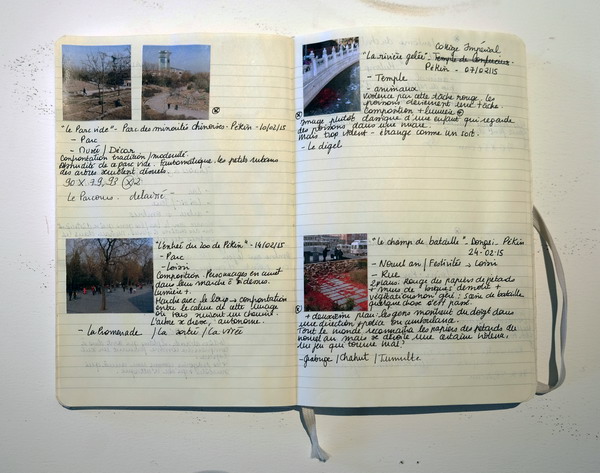 "Le Parc vide" - Parc des minorités chinoises - Pékin - 10/02/15
- Parc
- Musée / Décor
Confrontation tradition/modernité.
Absurdité de ce parc vide. Fantomatique. Les petits rubans
des arbres accultent dénués.
90 X 79,93 (x)2
Le Parcours. délaissé -
"L'entrée du zoo de Pékin" - 14/02/15
- Parc
- Loisirs
Composition. Personnages en avant
dans leur marche à dessus.
Lumière +.
Marche avec le loup → confrontation
entre le calme de cette image
où tous suivent un chemin.
L'arbre se dresse, autonome.
- La Promenade / La sortie / La virée
Collège Impérial
"La rivière gelée" - Temple de Confucius -
Pékin - 07/02/15
- Temple
- animaux
Violence par cette tâche rouge. Les
poissons deviennent leur tâche
Composition + lumière
Image plutôt classique d'un enfant qui regarde
des poissons dans une mare.
Mais trop violent - étrange comme un sort.
- Le digel
"Le champ de bataille" - Pékin
24-02-15
- Nouvel an / Festivités → Loisirs
- Rue
2 plans: Rouge des papiers de pétards
+ murs de
végétation : scène de bataille
quelque chose s'est passé.
+ deuxième plan: les gens montrent du doigt dans
une direction
Tout le monde reconnaîtra les papiers des pétards du
nouvel an mais se dévoile une certaine violence,
un jeu qui tourne mal?
- grabuge / Chahut / Tumulte